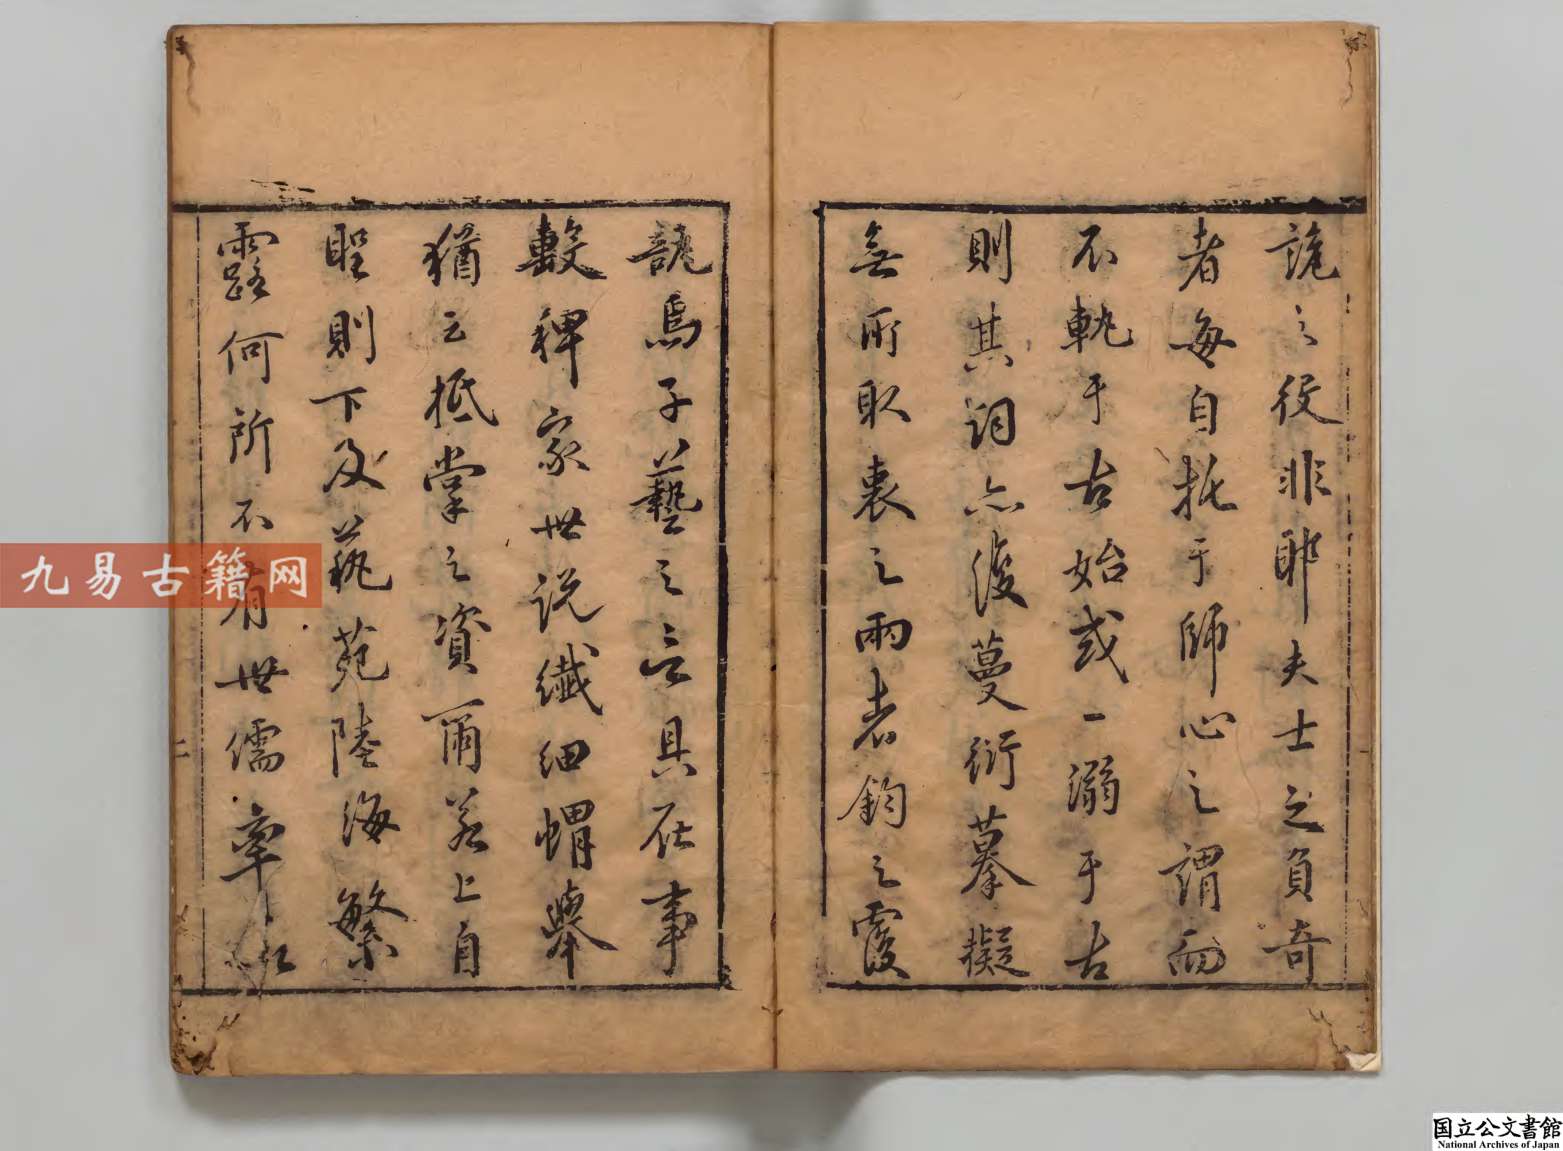 詭之役非耶夫士之負奇
者每自托于師心之謂而
不軌于古始或一溺于古
則其詞亦復蔓衍摹擬
無所取衷之兩者鈞之覆
瓿焉子藝之言具在事
數稗家世說纖細蝟舉
猶云抵掌之資爾若上自
聖則下及藝苑陸海繁
露何所不有世儒率
九易古籍网
国立公文書館
National Archives of Japan